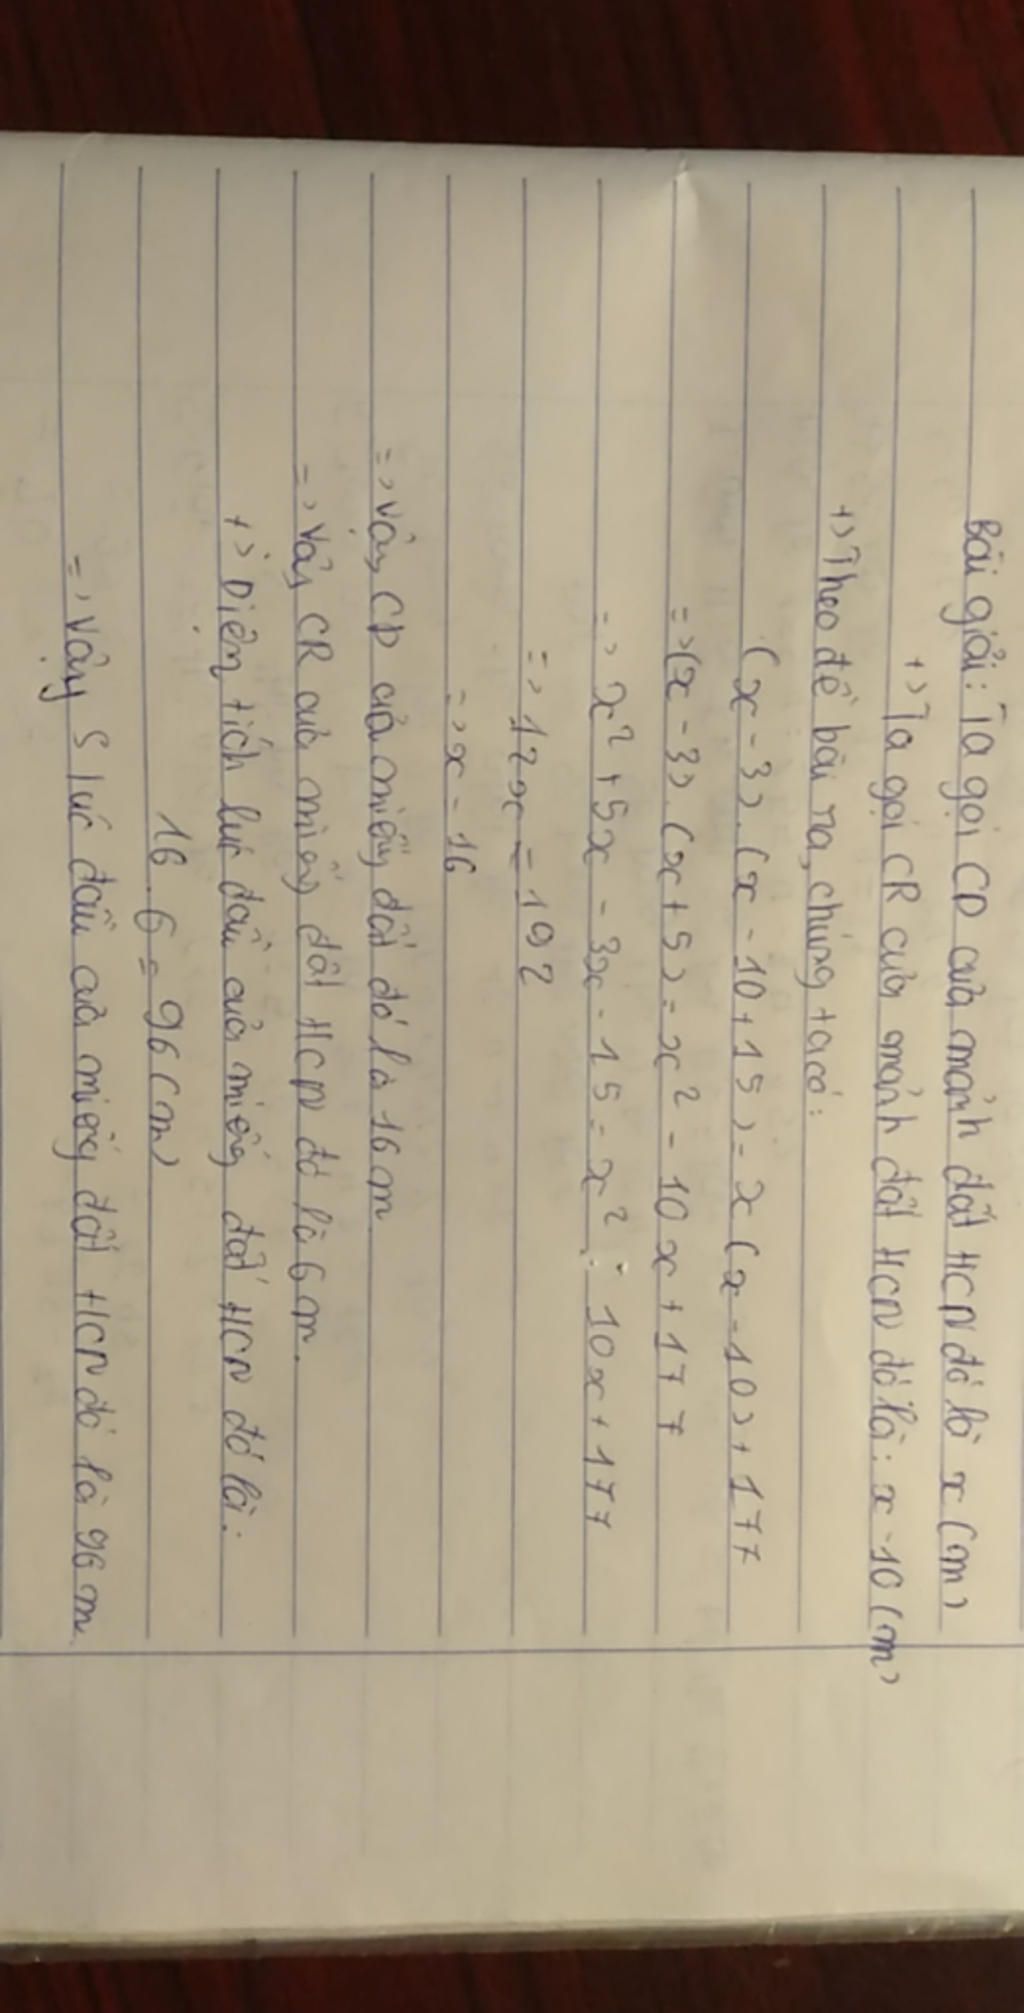 Bài giải: Ta gọi CD của mảnh đất HCN đó là x (m)
+> Ta gọi CR của mảnh đất HCN đó là: x - 10 (m)
+> Theo đề bài ra, chúng ta có:
(x - 3). (x - 10 + 15) = x (x - 10) + 177
=> (x - 3). (x + 5) = x² - 10x + 177
=> x² + 5x - 3x - 15 = x² - 10x + 177
=> 12x = 192
=> x = 16
=> Vậy CD của miếng đất đó là 16 m
=> Vậy CR của miếng đất HCN đó là 6 m.
+> Diện tích lúc đầu của miếng đất HCN đó là:
16 . 6 = 96 (m)
=> Vậy S lúc đầu của miếng đất HCN đó là 96 m.